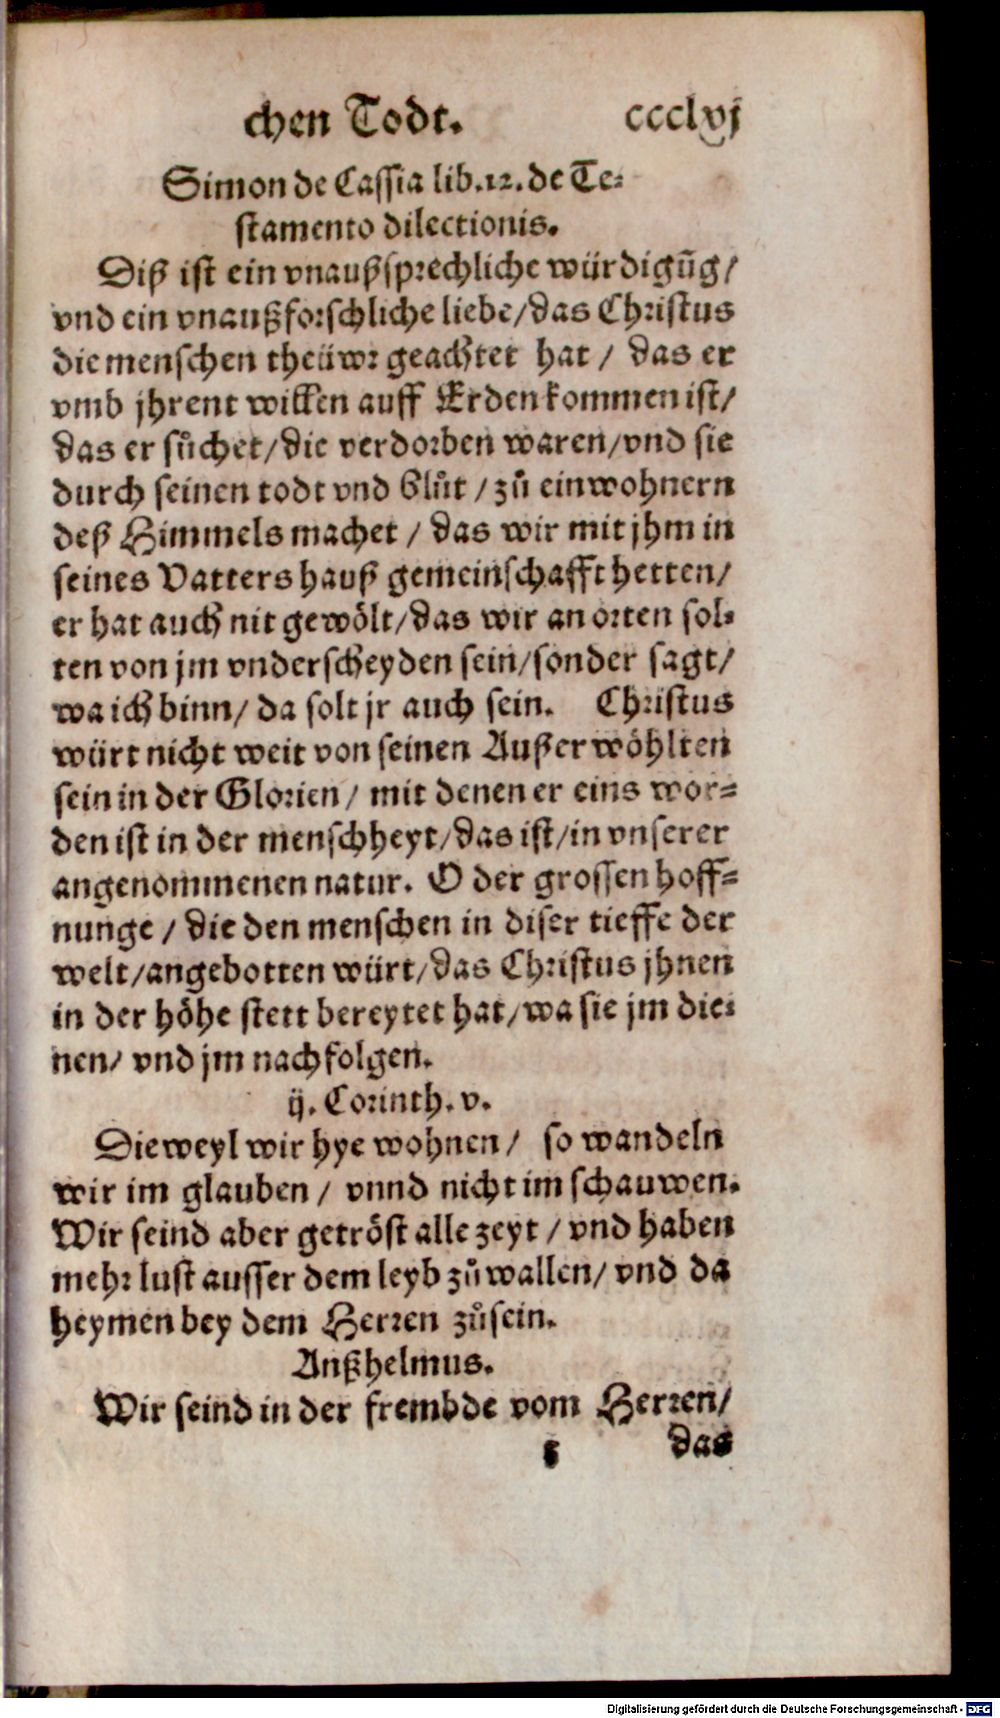 chen Todt. ccclvj
Simon de Cassia lib.12. de Te-
stamento dilectionis.
Diß ist ein vnaußsprechliche würdigũg/
vnd ein vnaußforschliche liebe/das Christus
die menschen theüwr geachtet hat / das er
vmb jhrent willen auff Erden kommen ist/
das er sůchet/die verdorben waren/vnd sie
durch seinen todt vnd Blůt / zů einwohnern
deß Himmels machet / das wir mit jhm in
seines Vatters hauß gemeinschafft hetten/
er hat auch nit gewölt/das wir an orten sol-
ten von jm vnderscheyden sein/sonder sagt/
wa ich binn/ da solt jr auch sein. Christus
würt nicht weit von seinen Außerwöhlten
sein in der Glorien/ mit denen er eins wor-
den ist in der menschheyt/das ist/in vnserer
angenommenen natur. O der grossen hoff-
nunge / die den menschen in diser tieffe der
welt/angebotten würt/das Christus jhnen
in der höhe stett bereytet hat/wa sie jm die-
nen/ vnd jm nachfolgen.
ij. Corinth. v.
Dieweyl wir hye wohnen/ so wandeln
wir im glauben/ vnnd nicht im schauwen.
Wir seind aber getröst alle zeyt / vnd haben
mehr lust ausser dem leyb zů wallen/ vnd da
heymen bey dem Herren zůsein.
Anßhelmus.
Wir seind in der frembde vom Herren/
das
Digitalisierung gefördert durch die Deutsche Forschungsgemeinschaft - DFG